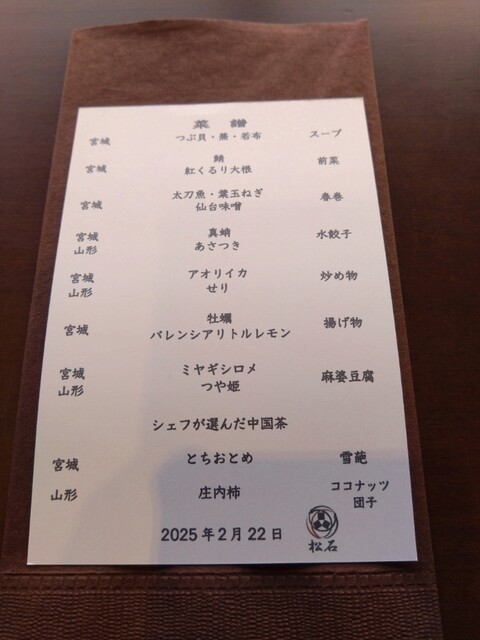 菜譜
宮城 つぶ貝・蕪・若布 スープ
宮城 鯖 前菜
紅くるり大根
宮城 太刀魚・葉玉ねぎ 春巻
仙台味噌
宮城 真蛸 水餃子
山形 あさつき
宮城 アオリイカ 炒め物
山形 せり
宮城 牡蠣 揚げ物
バレンシアリトルレモン
宮城 ミヤギシロメ 麻婆豆腐
山形 つや姫
シェフが選んだ中国茶
宮城 とちおとめ 雪葩
山形 庄内柿 ココナッツ
団子
2025年2月22日 松石